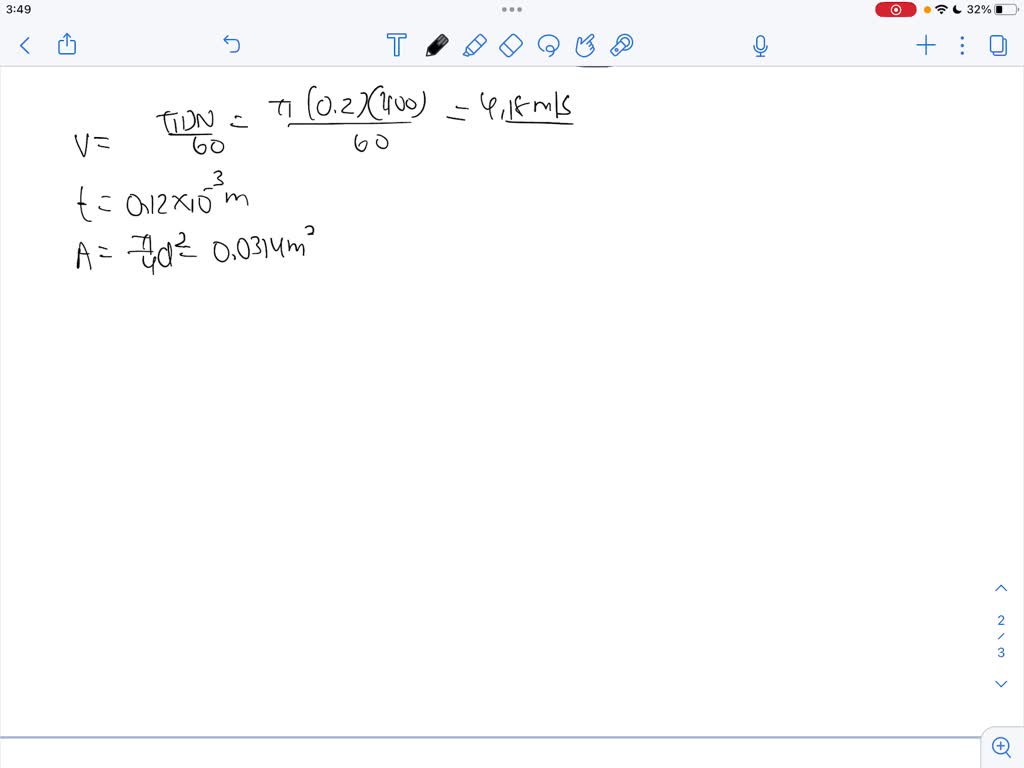 3:49
32%
V = πDN/60 = π(0.2)(400)/60 = 4,18 m/s
t = 0.12×10⁻³ m
A = π/4 d² = 0.0314 m²
2
3